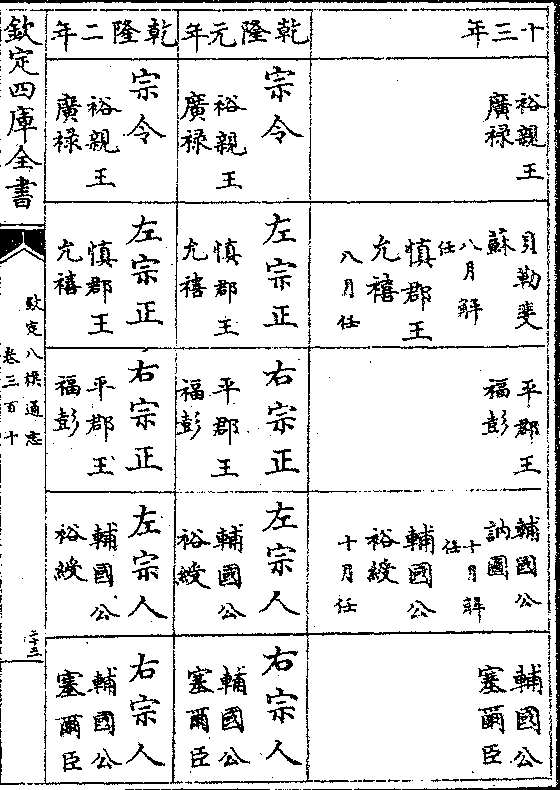 十三年
裕親王
廣祿
貝勒斐
蘇
八月解
任
慎郡王
允禧
八月任
平郡王
福彭
輔國公
訥圖
十月解
任
輔國公
裕綬
十月任
輔國公
塞爾臣
乾隆元年
宗令
裕親王
廣祿
左宗正
慎郡王
允禧
右宗正
平郡王
福彭
左宗人
輔國公
裕綬
右宗人
輔國公
塞爾臣
乾隆二年
宗令
裕親王
廣祿
左宗正
慎郡王
允禧
右宗正
平郡王
福彭
左宗人
輔國公
裕綬
右宗人
輔國公
塞爾臣
欽定四庫全書
欽定八旗通志
卷三百十
二十三